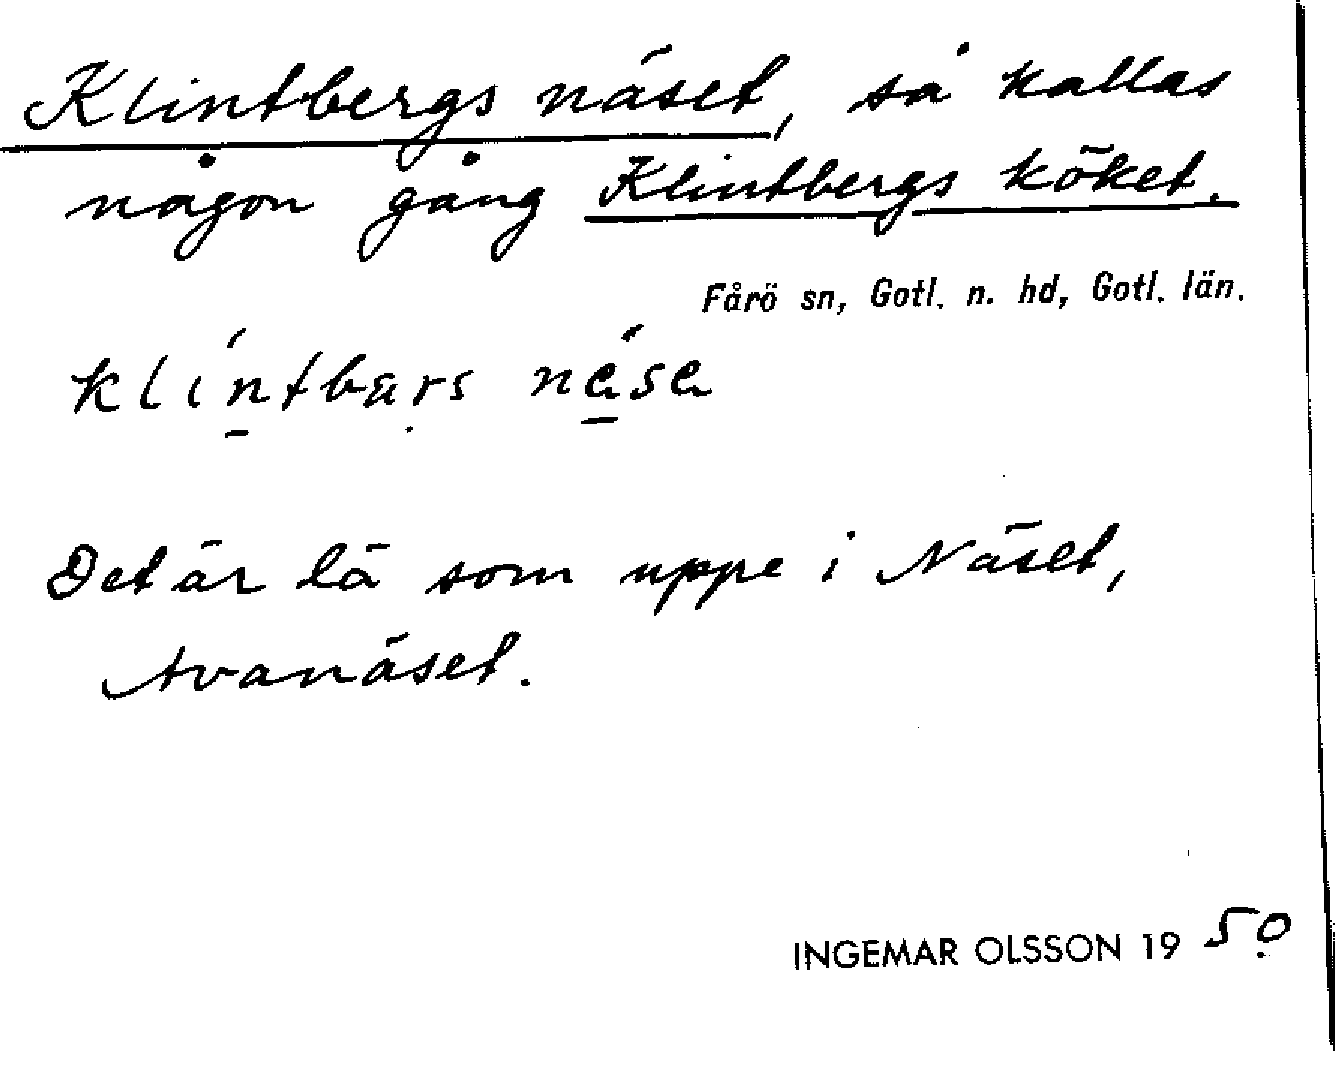 Klintbergs näset, så kallas
någon gång Klintbergs köket.
Fårö sn, Gotl. n. hd, Gotl. län.
klíntbærs nésa
Det är lä som uppe i Näset,
Avanäset.
INGEMAR OLSSON 19 50